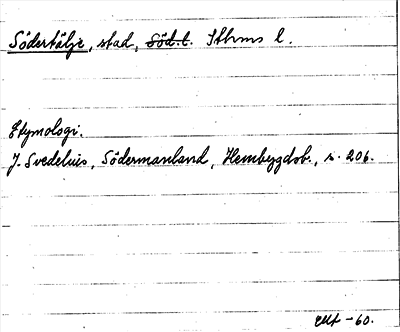 Södertälje, stad, Söd.t. Sthms l.
Etymologi.
J. Svedelius, Södermanland, Hembygdsb., s. 206.
-60.